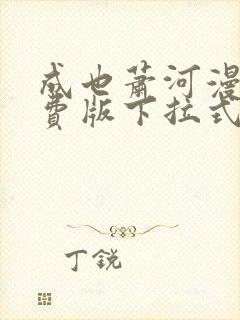 成也萧河漫
费版下拉式
丁銳